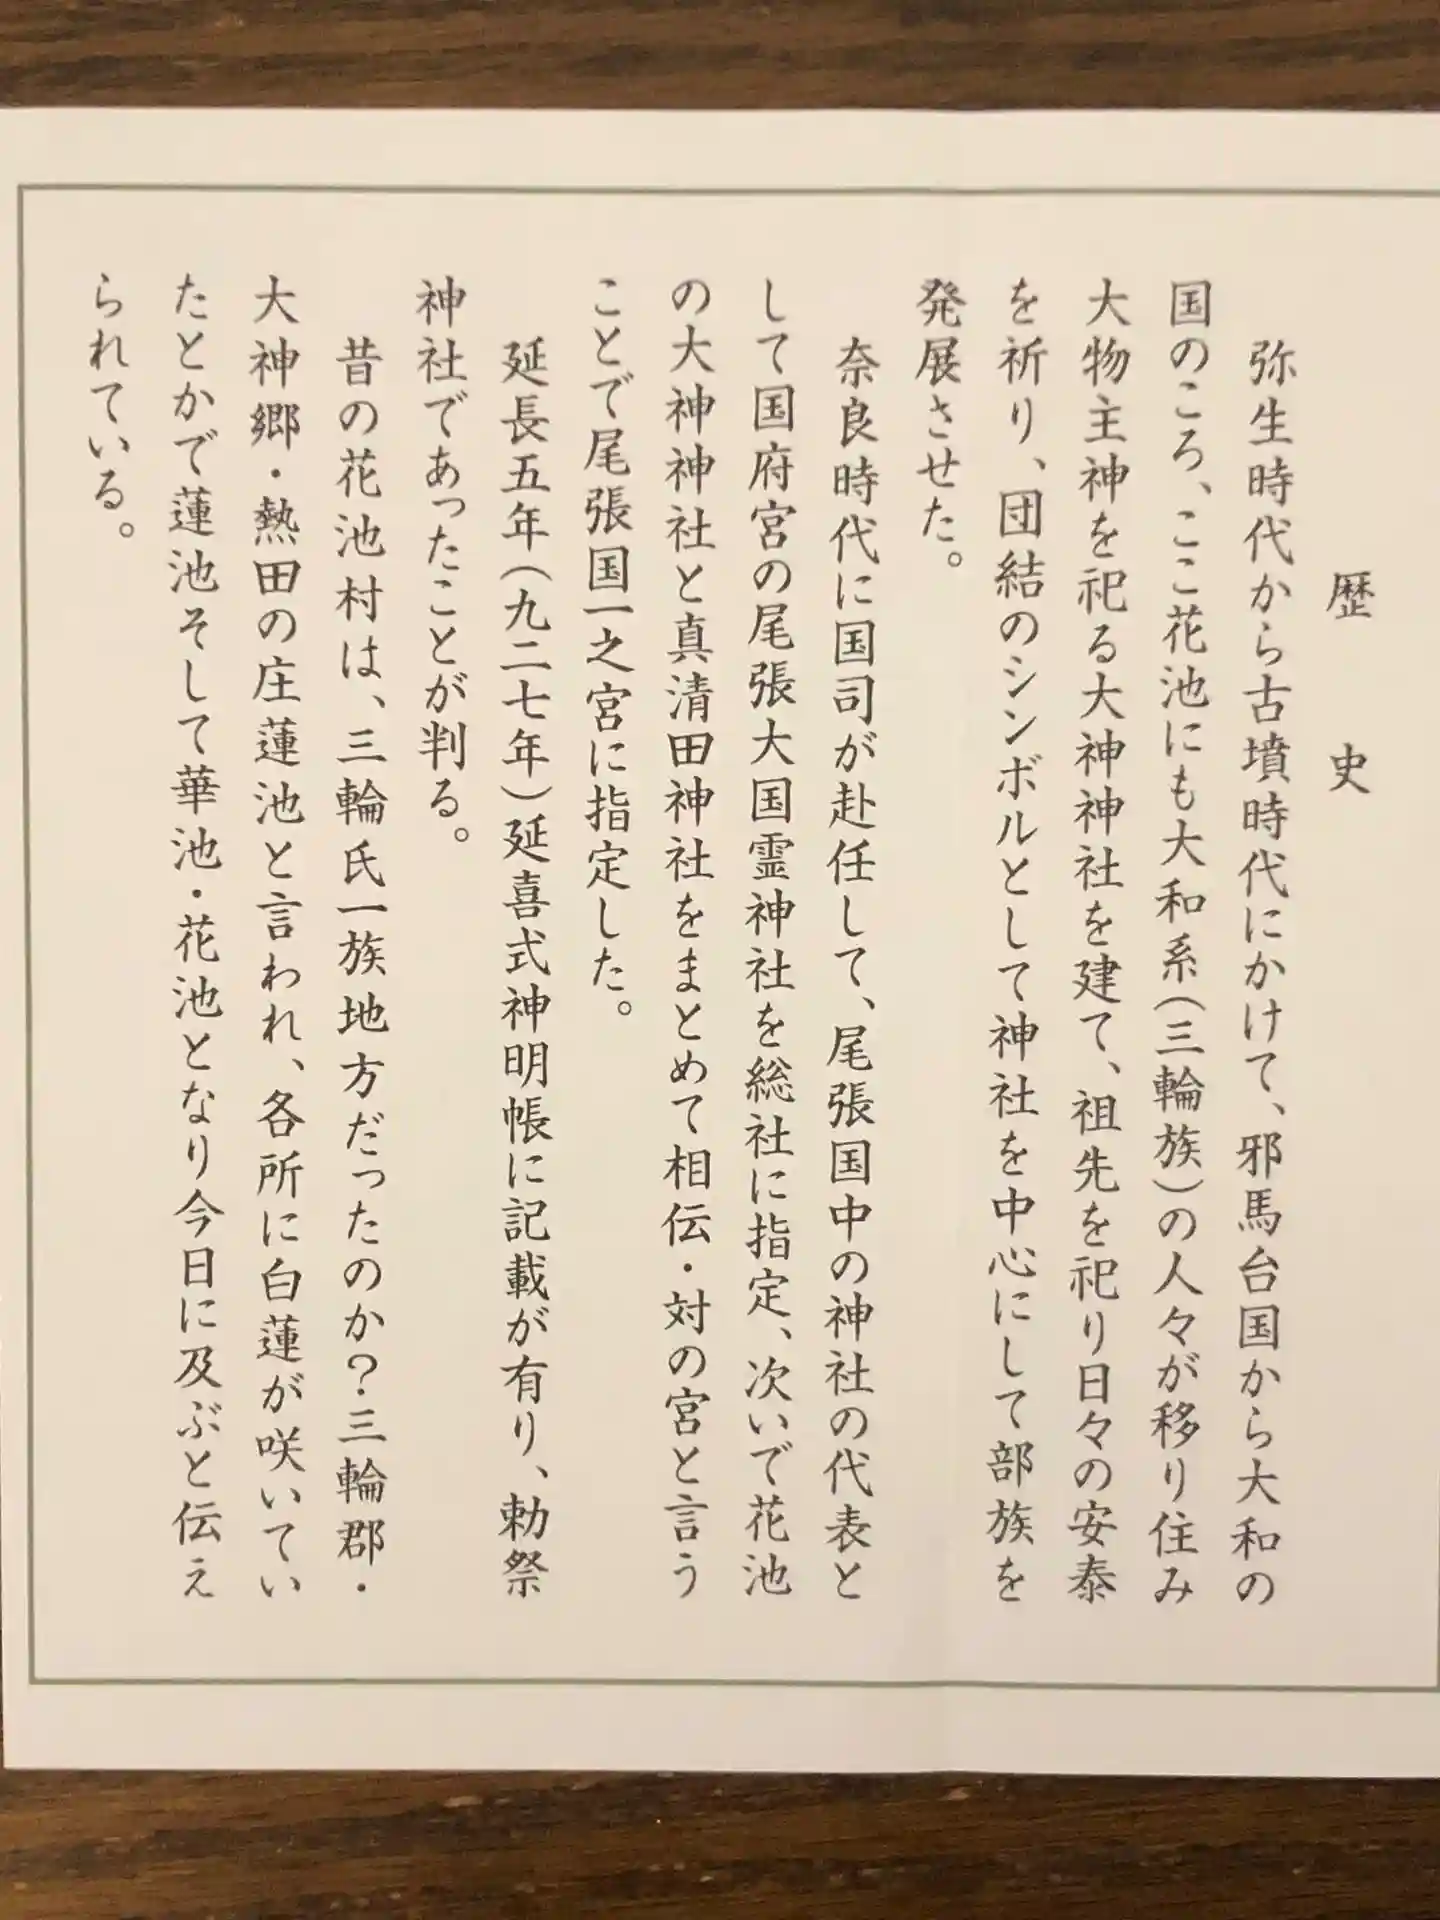 歴史
弥生時代から古墳時代にかけて、邪馬台国から大和の
国のころ、ここ花池にも大和系(三輪族)の人々が移り住み
大物主神を祀る大神神社を建て、祖先を祀り日々の安泰
を祈り、団結のシンボルとして神社を中心にして部族を
発展させた。
奈良時代に国司が赴任して、尾張国中の神社の代表と
して国府宮の尾張大国霊神社を総社に指定、次いで花池
の大神神社と真清田神社をまとめて相伝・対の宮と言う
ことで尾張国一之宮に指定した。
延長五年(九二七年)延喜式神明帳に記載が有り、勅祭
神社であったことが判る。
昔の花池村は、三輪氏一族地方だったのか?三輪郡・
大神郷・熱田の庄蓮池と言われ、各所に白蓮が咲いてい
たとかで蓮池そして華池・花池となり今日に及ぶと伝え
られている。